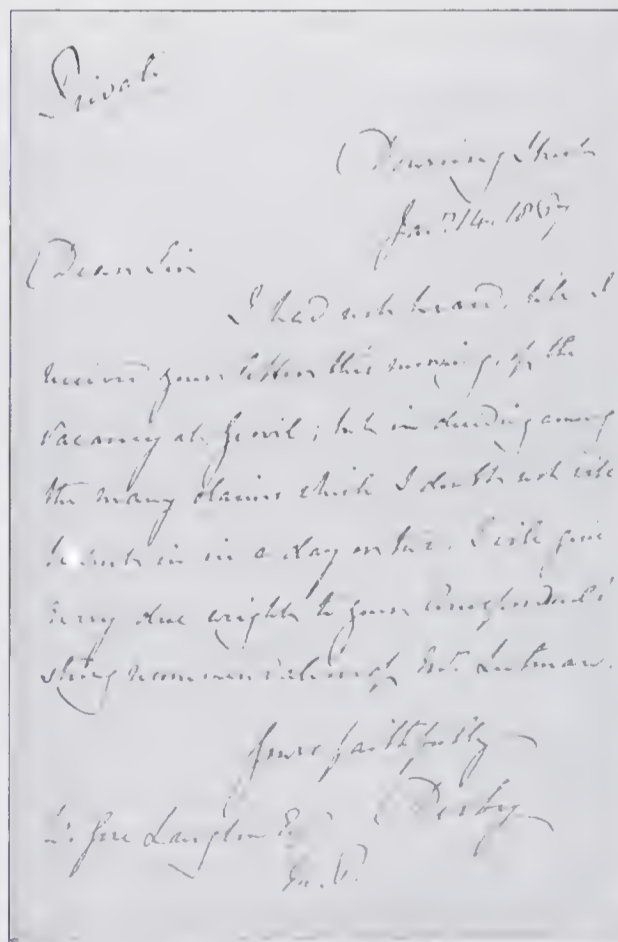 Private
Downing Street
Jan. 14. 1859
Dear Sir
I had not heard, till I
received your letter this morning, of the
vacancy at Yeovil; but in deciding among
the many claims which I doubt not will
be sent in in a day or two, I will give
every due weight to your correspondent's
strong recommendation of Mr.
Yours faithfully
Derby
Gore Langton
M.P.